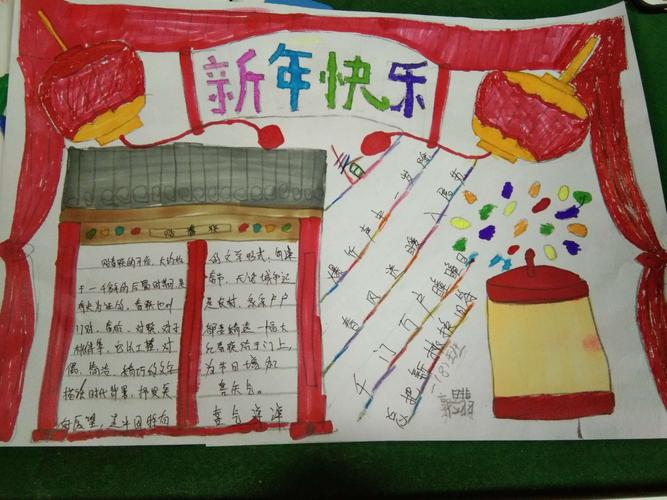 新年快乐
贴春联
贴春联的习俗，大约始
于一千多年的后蜀时期，是
有史为证的，春联也叫
门对、春贴、对联、对子
桃符等，它以工整、对
偶、简洁、精巧的文字
描绘时代背景，抒发美
好愿望，是中国特有
的文学形式，每逢
春节，无论城市还
是农村，家家户户
都要精选一幅大
红春联贴于门上，
为节日增加
喜庆气
喜气洋洋
元日
爆竹声中一岁除
春风送暖入屠苏
千门万户曈曈日
总把新桃换旧符
一(8)班